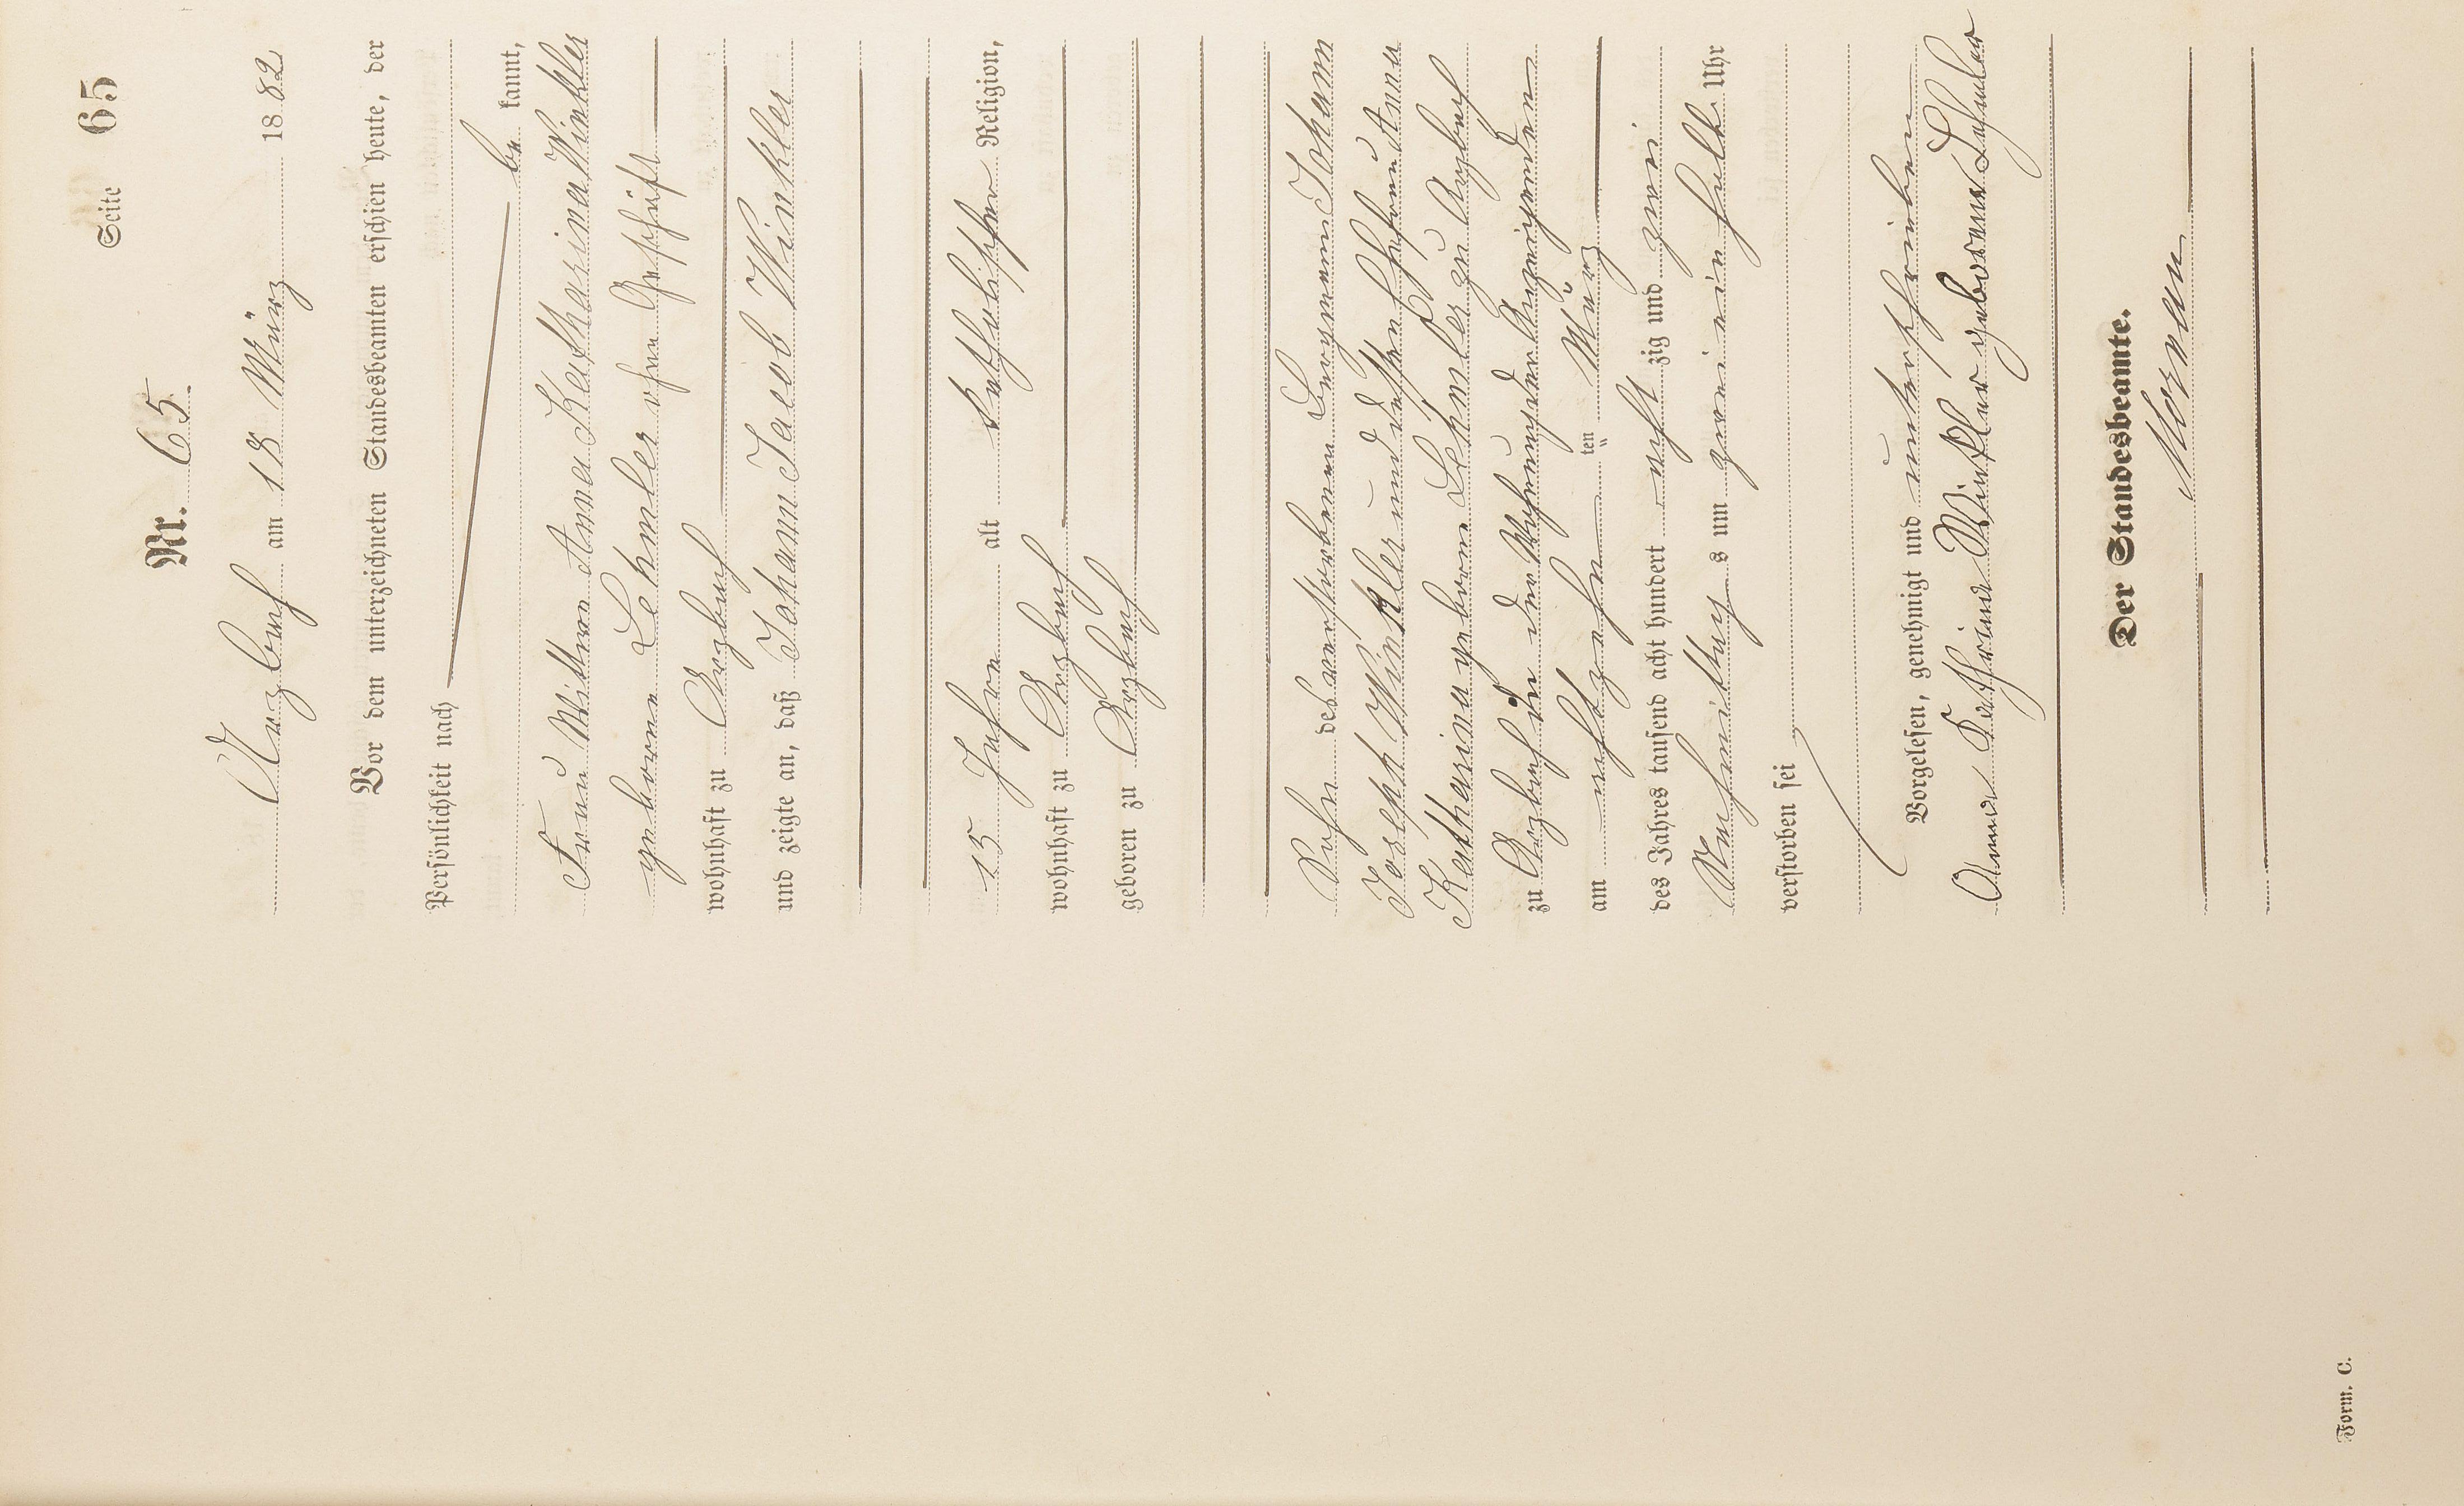 Seite 65
Nr. 65.
Arzbach am 18 März 1882
Vor dem unterzeichneten Standesbeamten erschien heute, der
Persönlichkeit nach
be kannt,
Frau Wittwe Anna Katharina Winkler
geborene Lehmler ohne Geschäft
wohnhaft zu Arzbach
und zeigte an, daß Johann Jacob Winkler
15 Jahre alt katholischer Religion,
wohnhaft zu Arzbach
geboren zu Arzbach
Sohn des verstorbenen Bergmann Johann
Joseph Winkler und dessen Ehefrau Anna
Katharina geborene Lehmler zu Arzbach
zu Arzbach in der Wohnung der Anzeigenden
am achtzehn ten März
des Jahres tausend acht hundert acht zig und zwei
Nachmittag s um zwei ein halb Uhr
verstorben sei
Vorgelesen, genehmigt und unterschrieben
Anna Kathrina Winkler geborene Lehmler
Der Standesbeamte.
Form. C.